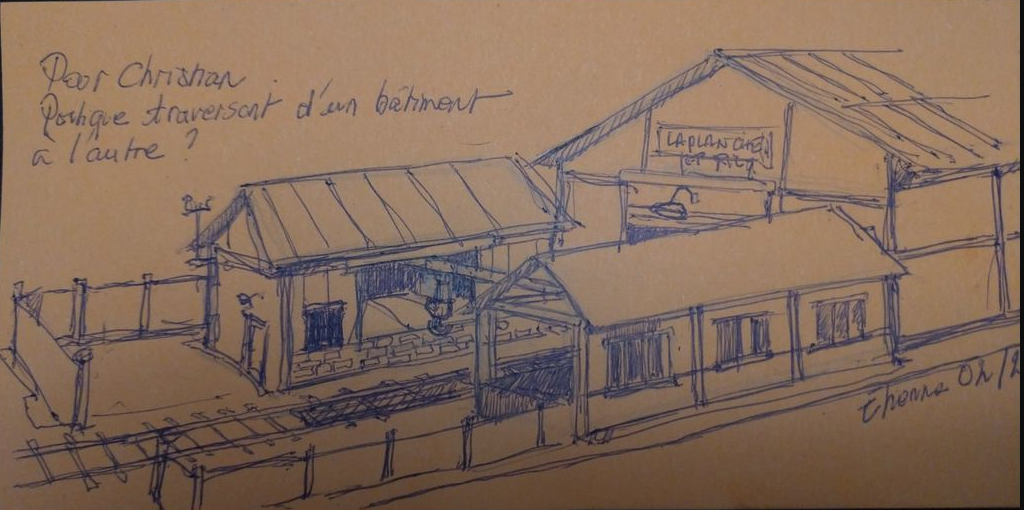 Pour Christian
Portique traversant d'un bâtiment
à l'autre ?
LAPLANCHE
ET FILS
Etienne 02/2